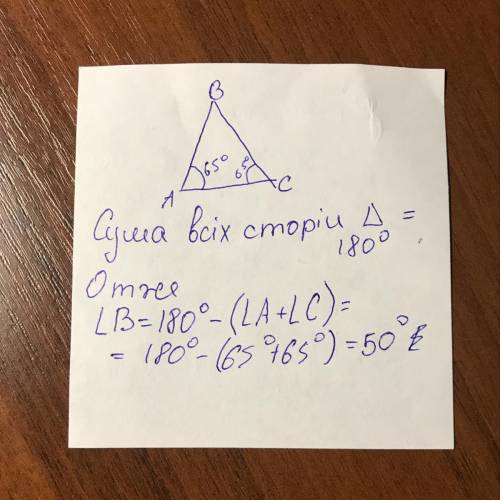 B
65°
65°
A
C
Сума всіх сторін △ =
180°
Отже
∠B = 180° - (∠A + ∠C) =
= 180° - (65° + 65°) = 50°